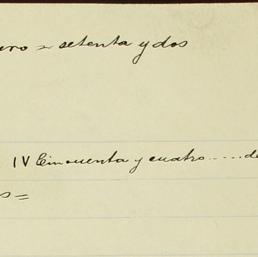 setenta y dos
IV Cincuenta y cuatro.....de